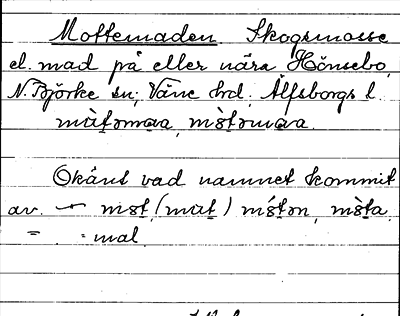 Mottemaden Skogsmosse
el. mad på eller nära Hönsebo,
N. Björke sn; Väne hrd. Älfsborgs l.
Okänt vad namnet kommit
av. — mɘt (mɯt) mɘ́tən, mɘ̀ta
" " = mal